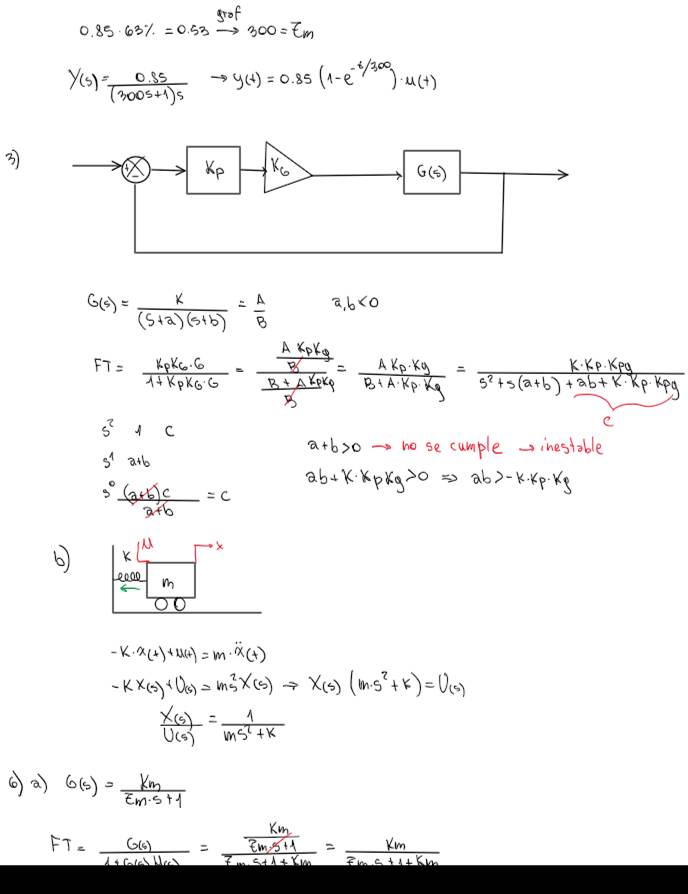 0.85 · 63% = 0.53 graf → 300 = τm
Y(s) = 0.85 / (300s+1)s → y(t) = 0.85 (1-e^(-t/300)) · u(t)
3)
+ - Kp KG G(s)
G(s) = K / (s+a)(s+b) = A / B a,b<0
FT = KpKG·G / 1+KpKG·G = (A KpKg / B) / (B + A KpKg / B) = A Kp·Kg / B+A·Kp·Kg = K·Kp·Kpg / s²+s(a+b)+ab+K·Kp·Kpg
c
s² 1 c
s¹ a+b
s⁰ (a+b)c / a+b = c
a+b>0 → no se cumple → inestable
ab+K·KpKg>0 ⇒ ab>-K·Kp·Kg
b)
K u x
m
-K·x(t)+u(t) = m·ẍ(t)
-KX(s)+U(s) = ms²X(s) → X(s) (m·s²+K) = U(s)
X(s) / U(s) = 1 / ms²+K
6) a) G(s) = Km / τm·s+1
FT = G(s) / 1+G(s)·H(s) = (Km / τm·s+1) / τm·s+1+Km = Km / τm·s+1+Km